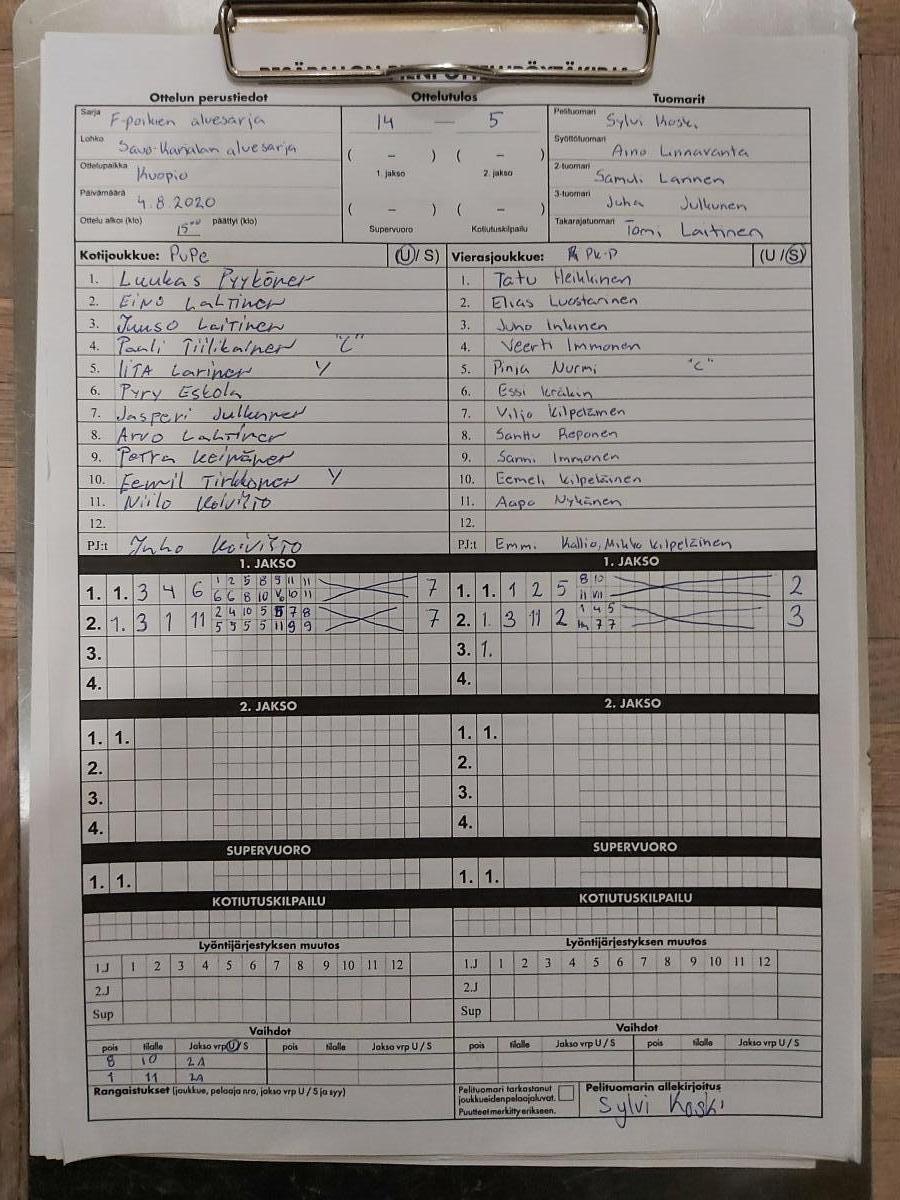 Ottelun perustiedot Ottelutulos Tuomarit
Sarja F-poikien aluesarja
14 — 5
Pelituomari Sylvi Koski
Lohko Savo-Karjalan aluesarja
Syöttötuomari Aino Linnavanta
Ottelupaikka Kuopio
( – ) ( – )
1. jakso 2. jakso
2-tuomari Samuli Lannen
Päivämäärä 4.8.2020
3-tuomari Juha Julkunen
( – ) ( – )
Ottelu alkoi (klo) 15⁰⁰ päättyi (klo)
Supervuoro Kotiutuskilpailu
Takarajatuomari Tomi Laitinen
Kotijoukkue: PuPe (U/ S) Vierasjoukkue: PK-P (U /S)
1. Luukas Pyykönen 1. Tatu Heikkinen
2. Eino Lahtinen 2. Elias Luostarinen
3. Juuso Laitinen 3. Juho Inkinen
4. Pauli Tiilikainen "C" 4. Veerti Immonen
5. IITA Larinen Y 5. Pinja Nurmi "C"
6. Pyry Eskola 6. Essi
7. Jasperi Julkunen 7. Viljo Kilpeläinen
8. Arvo Lahtinen 8. Santtu Reponen
9. Petra Keinänen 9. Sanni Immonen
10. Eemil Tirkkonen Y 10. Eemeli Kilpeläinen
11. Niilo Koivisto 11. Aapo Nykänen
12. 12.
PJ:t Juho Koivisto PJ:t Emmi Kallio, Mikko Kilpeläinen
1. JAKSO 1. JAKSO
1. 1. 3 4 6 1 2 5 8 9 11 11 7 1. 1. 1 2 5 8 10 2
6 6 8 10 10 11 11 VII
2. 1. 3 1 11 2 4 10 5 5 7 8 7 2. 1. 3 11 2 1 4 5 3
5 5 5 5 11 9 9 7 7
3. 3. 1.
4. 4.
2. JAKSO 2. JAKSO
1. 1. 1. 1.
2. 2.
3. 3.
4. 4.
SUPERVUORO SUPERVUORO
1. 1. 1. 1.
KOTIUTUSKILPAILU KOTIUTUSKILPAILU
Lyöntijärjestyksen muutos Lyöntijärjestyksen muutos
1.J 1 2 3 4 5 6 7 8 9 10 11 12 1.J 1 2 3 4 5 6 7 8 9 10 11 12
2.J 2.J
Sup Sup
Vaihdot Vaihdot
pois tilalle Jakso vrp U / S pois tilalle Jakso vrp U / S pois tilalle Jakso vrp U / S pois tilalle Jakso vrp U / S
8 10 2A
1 11 2A
Rangaistukset (joukkue, pelaaja nro, jakso vrp U / S ja syy)
Pelituomari tarkastanut
joukkueiden pelaajaluvat.
Puutteet merkitty erikseen.
Pelituomarin allekirjoitus
Sylvi Koski